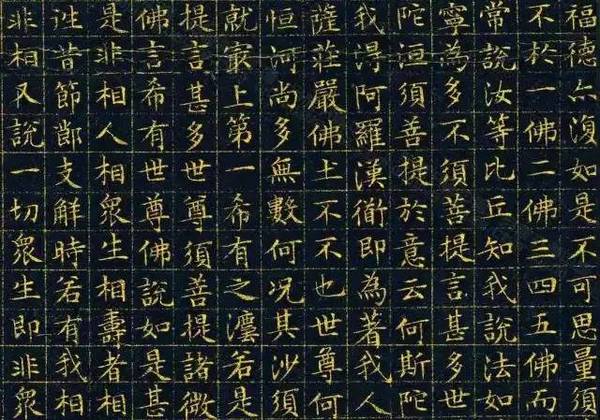 福德亦復如是不可思量須
不於一佛二佛三四五佛而
常說汝等比丘知我說法如
寧為多不須菩提言甚多世
陀洹須菩提於意云何斯陀
我得阿羅漢衜即為著我人
薩莊嚴佛土不不也世尊何
恒河尚多無數何況其沙須
就㝡上第一希有之灋若是
提言甚多世尊須菩提諸微
佛言希有世尊佛說如是甚
是非相人相眾生相壽者相
往昔節節支解時若有我相
非相又說一切眾生即非眾